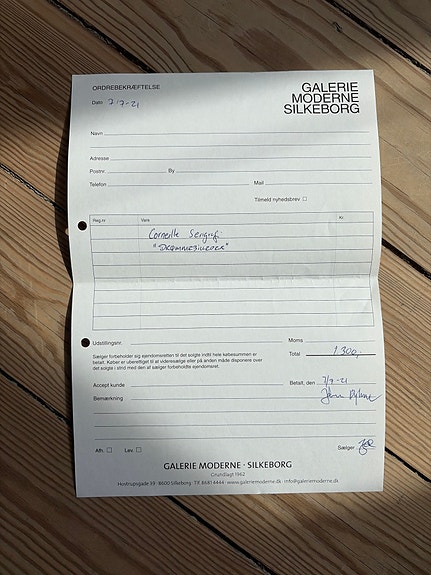 ORDREBEKRÆFTELSE
GALERIE
MODERNE
SILKEBORG
Dato 7/7-21
Navn
Adresse
Postnr. By
Telefon Mail
Tilmeld nyhedsbrev
Reg.nr Vare Kr.
Corneille Serigrafi
Udstillingsnr. Moms
Sælger forbeholder sig ejendomsretten til det solgte indtil hele købesummen er
betalt. Køber er uberettiget til at videresælge eller på anden måde disponere over
det solgte i strid med den af sælger forbeholdte ejendomsret.
Total 1.300,-
Accept kunde Betalt, den 7/7-21
Bemærkning
Afh. Lev. Sælger
GALERIE MODERNE · SILKEBORG
Grundlagt 1962
Hostrupsgade 39 · 8600 Silkeborg · Tlf. 8681 6444 · www.galeriemoderne.dk · info@galeriemoderne.dk